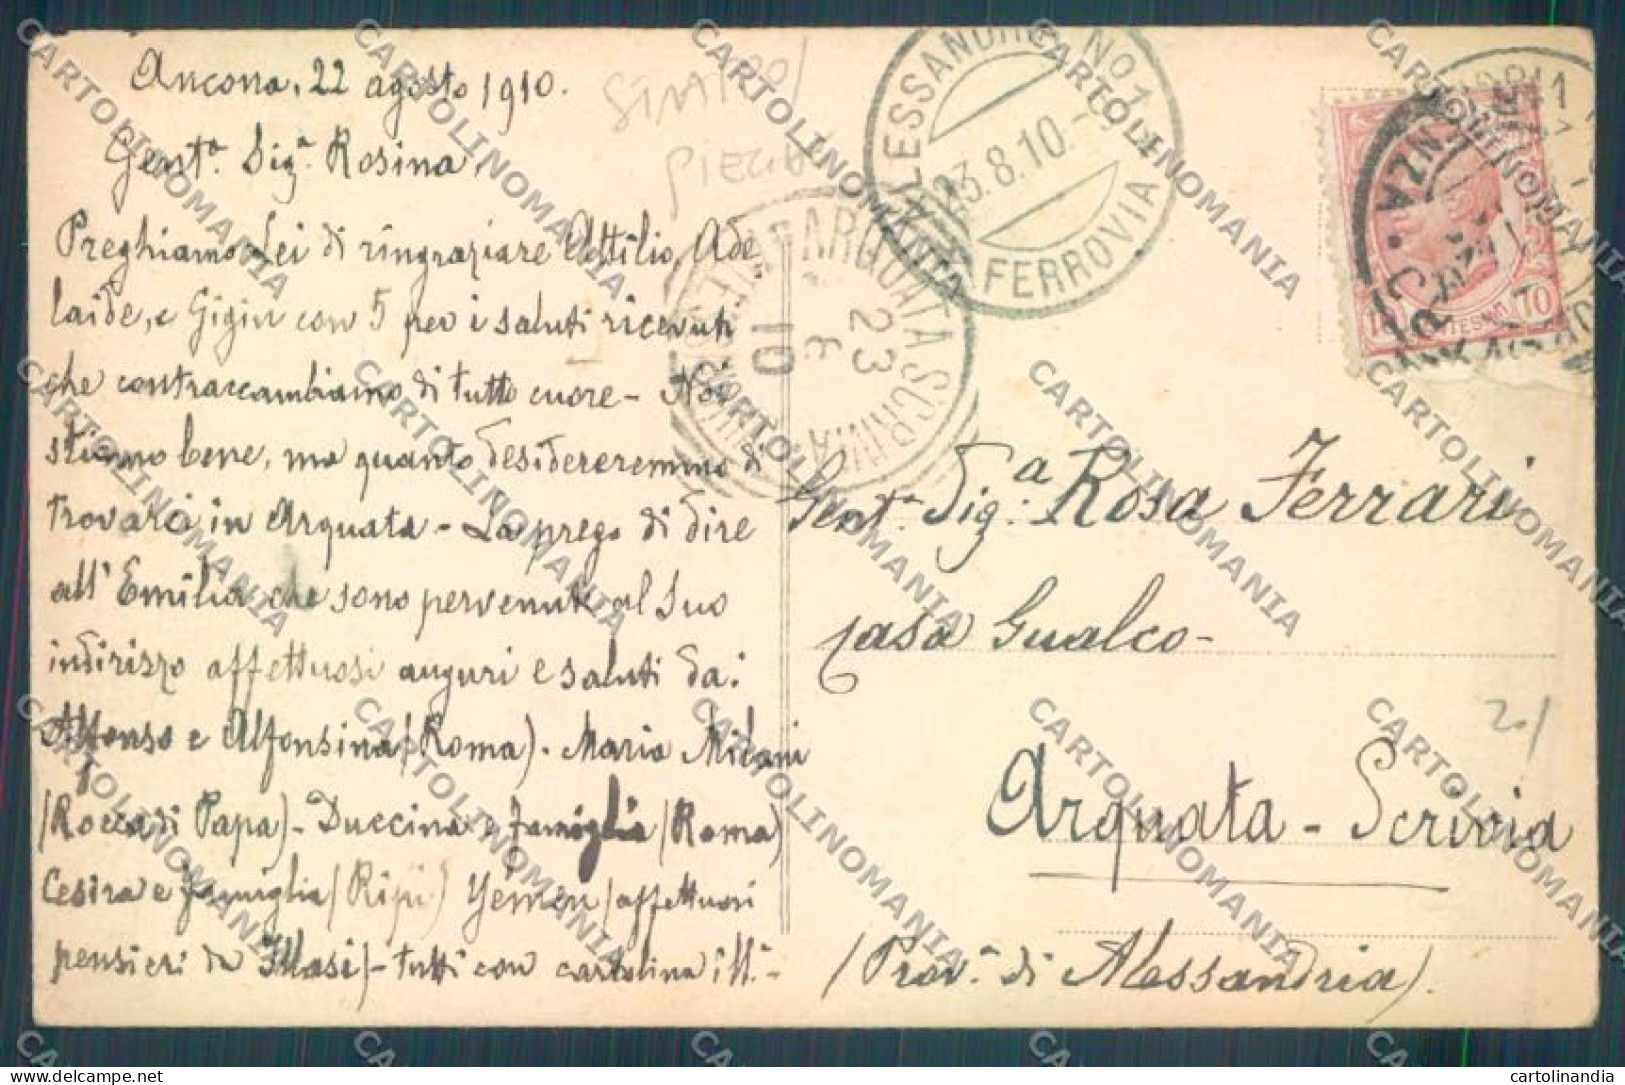 Ancona, 22 agosto 1910.
Gent.ª Sig.ª Rosina,
Preghiamo Lei di ringraziare Attilio, Ade
laide, e Gigin con 5 per i saluti ricevuti
che contraccambiamo di tutto cuore - Noi
stiamo bene, ma quanto desidereremmo di
trovarci in Arquata - La prego di dire
all'Emilia che sono pervenute al suo
indirizzo affettuosi auguri e saluti da:
Alfonso e Alfonsina (Roma) - Maria Milani
(Rocca di Papa) - Duccina e famiglia (Roma)
Cesira e famiglia (Ripi) Yemen (affettuosi
pensieri da Illasi) - tutti con cartolina ill.-
Gent.ª Sig.ª Rosa Ferrari
Casa Gualco -
Arquata - Scrivia
(Prov.ª di Alessandria).
ALESSANDRIA
23.8.10.
FERROVIA
ARQUATA SCRIVIA
23
8
10
10
20/
CARTOLINOMANIA
cartolinandia